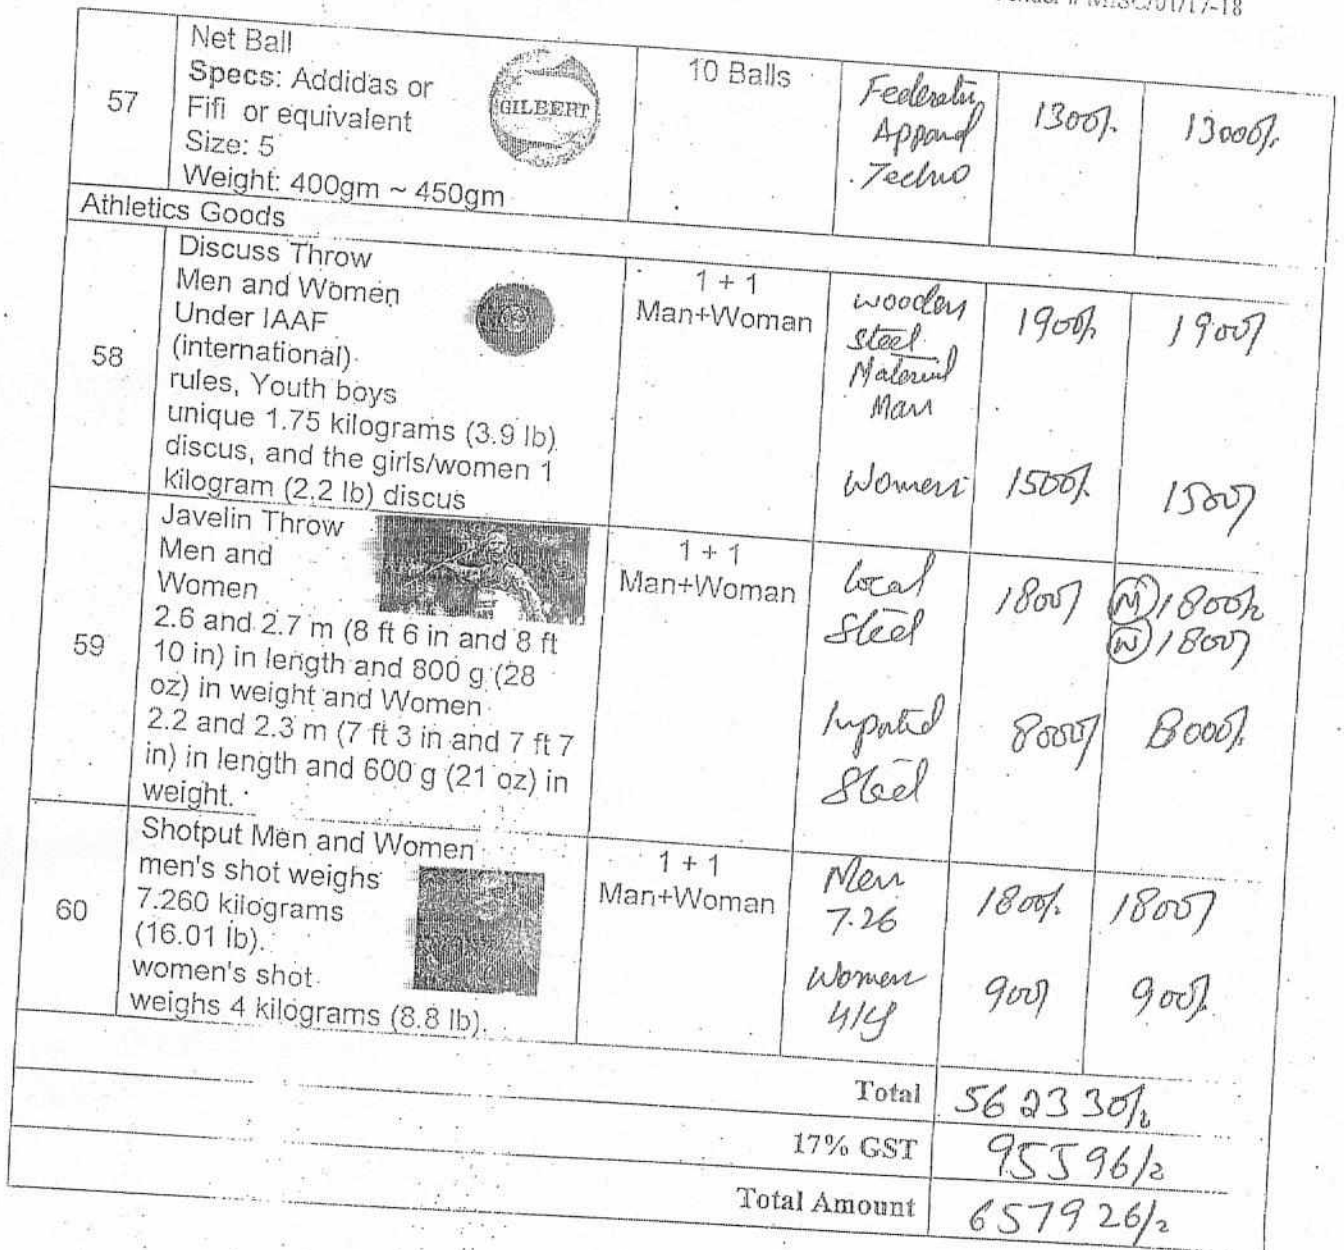 Tender # MISC/01/17-18
57
Net Ball
Specs: Addidas or
Fifi or equivalent
Size: 5
Weight: 400gm ~ 450gm
GILBERT
10 Balls
Techno
1300/.
13000/.
Athletics Goods
58
Discuss Throw
Men and Women
Under IAAF
(international)
rules, Youth boys
unique 1.75 kilograms (3.9 lb)
discus, and the girls/women 1
kilogram (2.2 lb) discus
1 + 1
Man+Woman
wooden
steel
Material
Man
1900/.
1900/
Women
1500/.
1500/
59
Javelin Throw
Men and
Women
2.6 and 2.7 m (8 ft 6 in and 8 ft
10 in) in length and 800 g (28
oz) in weight and Women
2.2 and 2.3 m (7 ft 3 in and 7 ft 7
in) in length and 600 g (21 oz) in
weight.
1 + 1
Man+Woman
Local
Steel
1800/
M 1800/
W 1800/
Imported
Steel
8000/
8000/.
60
Shotput Men and Women
men's shot weighs
7.260 kilograms
(16.01 lb).
women's shot
weighs 4 kilograms (8.8 lb).
1 + 1
Man+Woman
Men
7.26
1800/.
1800/
Women
900/
900/.
Total 562330/
17% GST 95596/
Total Amount 657926/